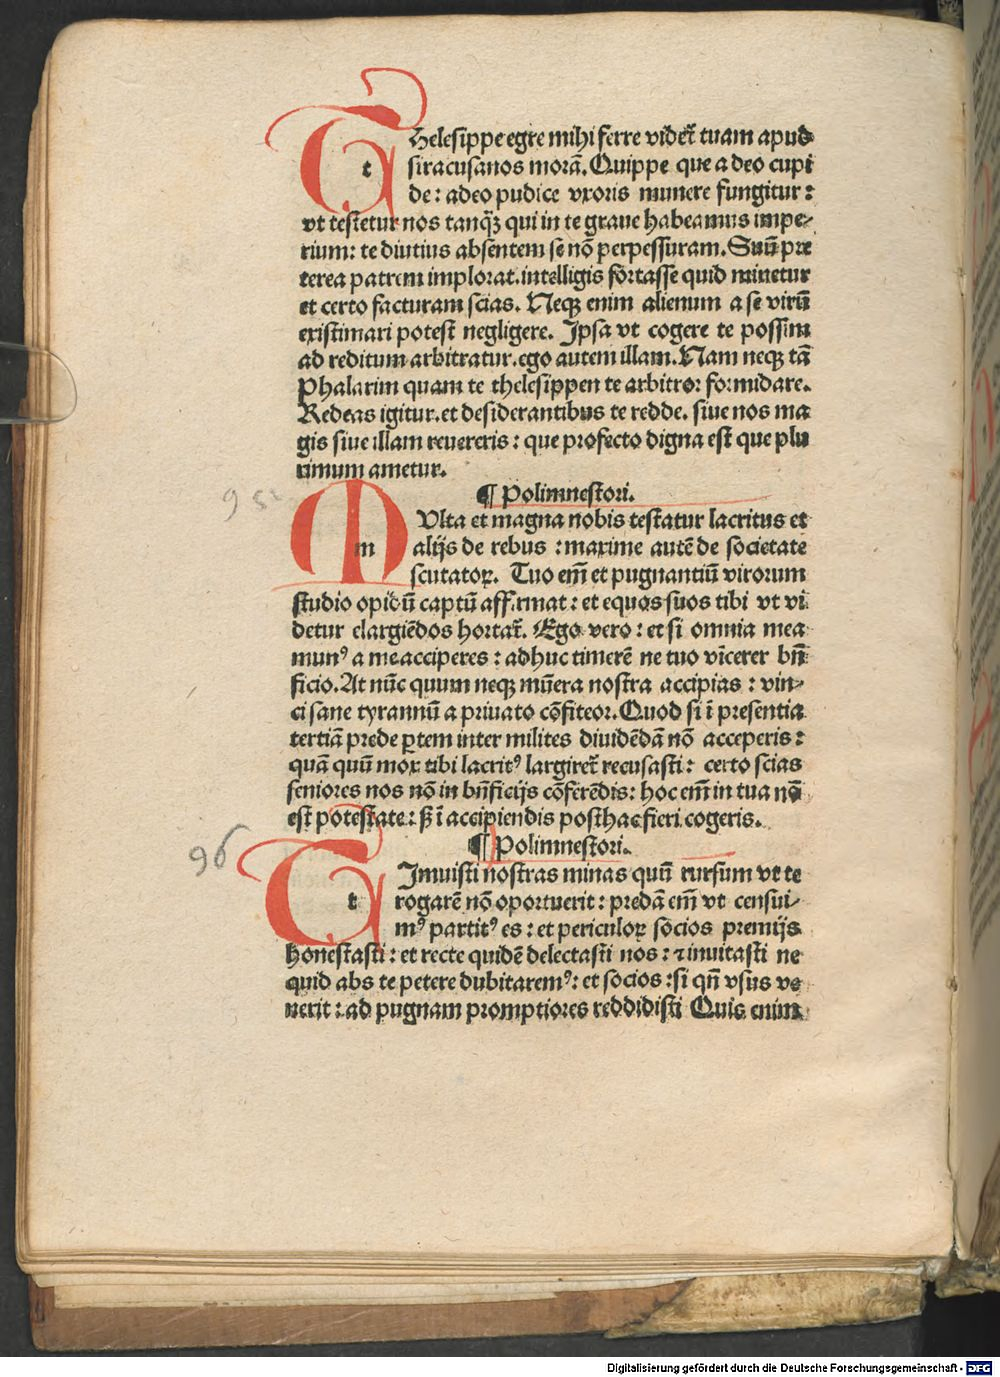 Thelesippe egre mihi ferre videt᷑ tuam apud
siracusanos morā. Quippe que adeo cupi
de: adeo pudice vxoris munere fungitur:
vt testetur nos tanqꝫ qui in te graue habeamus impe-
rium: te diutius absentem se nō perpessuram. Suū pre
terea patrem implorat. intelligis fortasse quid minetur
et certo facturam scias. Neqꝫ enim alienum a se virū
existimari potest negligere. Ipsa vt cogere te possim
ad reditum arbitratur. ego autem illam. Nam neqꝫ tā
Phalarim quam te thelesippen te arbitror formidare.
Redeas igitur. et desiderantibus te redde. siue nos ma
gis siue illam reuereris: que profecto digna est que plu
rimum ametur.
95
¶ Polimnestori.
MVlta et magna nobis testatur lacritus et
alijs de rebus: maxime autē de societate
scutatoꝝ. Tuo em̄ et pugnantiū virorum
studio opidū captū affirmat: et equos suos tibi vt vi
detur elargiēdos hortat᷑. Ego vero: et si omnia mea
munꝰ a me acciperes: adhuc timerē ne tuo vīcerer bn̄
ficio. At nūc quum neqꝫ mūera nostra accipias: vin-
ci sane tyrannū a priuato cōfiteor. Quod si ī presentia
tertiā prede ꝑtem inter milites diuidēdā nō acceperis:
quā quū mox tibi lacritꝰ largiret᷑ recusasti: certo scias
seniores nos nō in bn̄ficijs cōferēdis: hoc em̄ in tua nō
est potestate: sꝫ ī accipiendis posthac fieri cogeris.
96
¶ Polimnestori.
TImuisti nostras minas quū rursum vt te
rogarē nō oportuerit: predā em̄ vt censui-
mꝰ partitꝰ es: et periculoꝝ socios premijs
honestasti: et recte quidē delectasti nos: ⁊ inuitasti ne
quid abs te petere dubitaremꝰ: et socios: si qn̄ vsus ve
nerit: ad pugnam promptiores reddidisti Quis enim
Digitalisierung gefördert durch die Deutsche Forschungsgemeinschaft - DFG